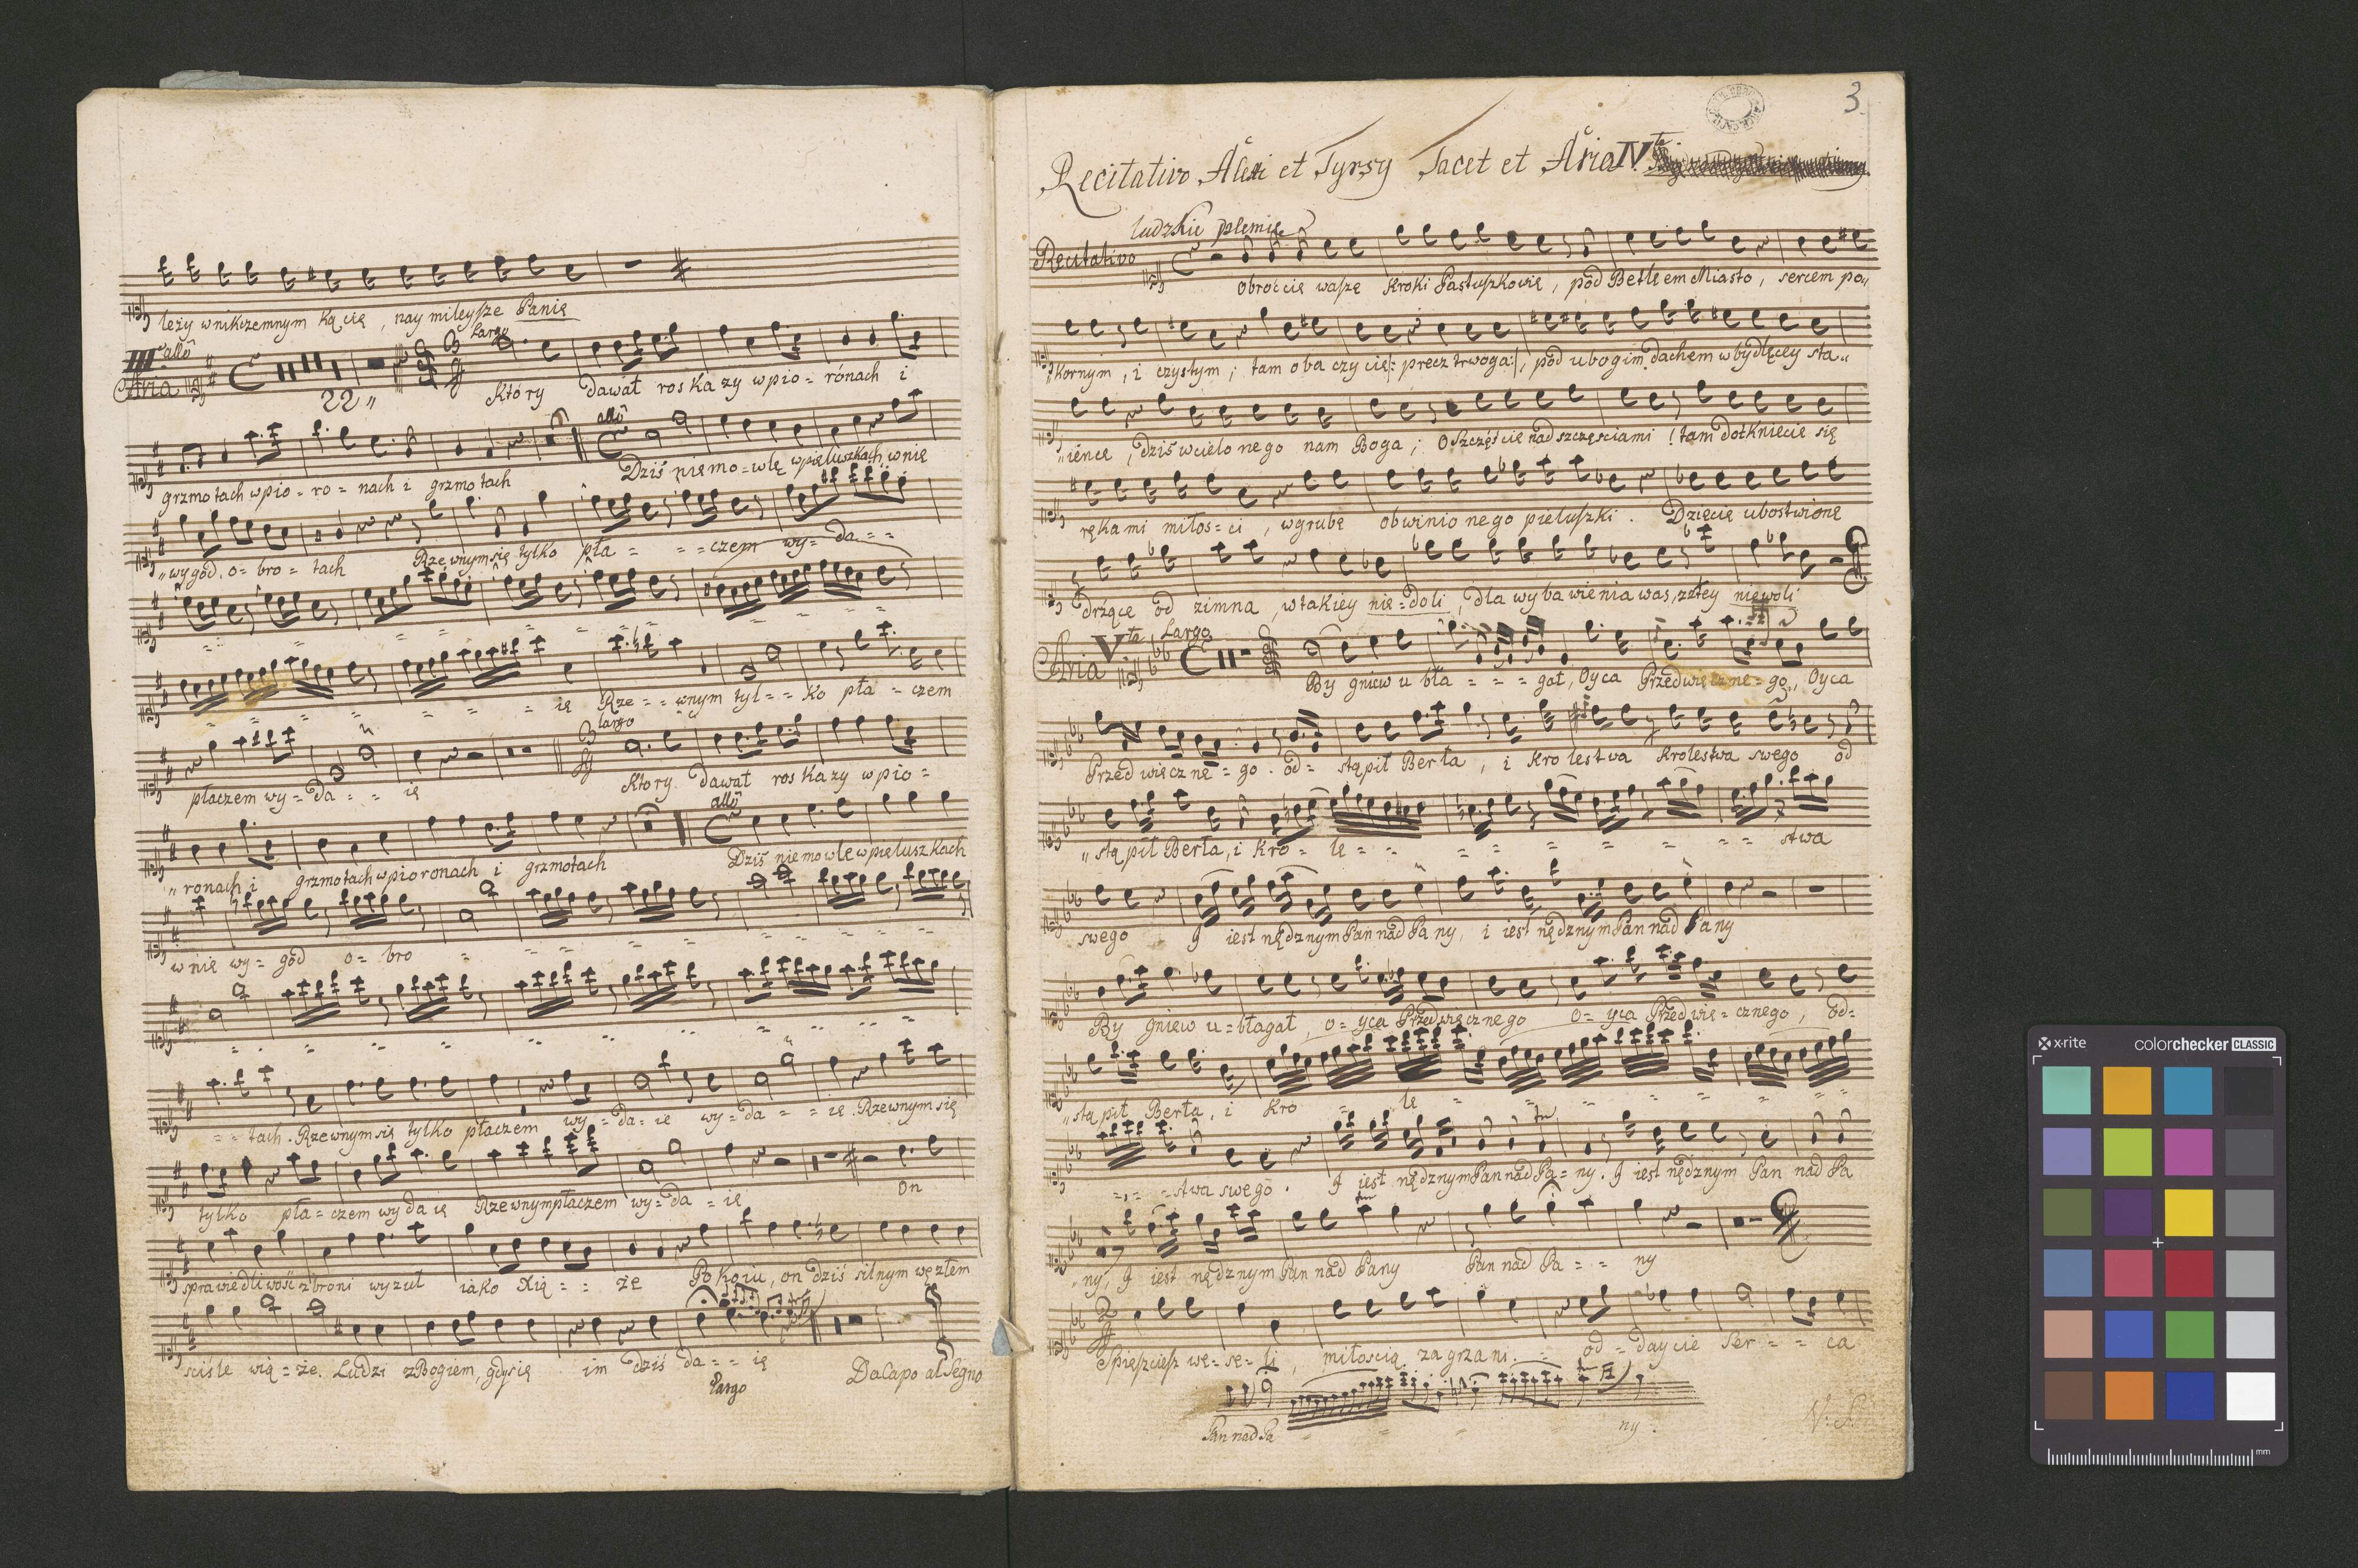 leży wnikczemnym kącię, nay mileysze Panię
III. allo Largo
Aria 22 Który dawał roskazy wpio = rónach i
allo
grzmotach wpio = ro = nach i grzmotach Dziś niemo = wlę wpieluszkach wnię
„wygód. o = bro = tach Rzewnym się tylko pła = = = czem wy = da = =
= = = = = = = = =
= = = = = = = ię Rze = = wnym tyl = = ko pła = czem
largo
płaczem wy = da = = ię Ktory dawał roskazy wpio =
allo
„ronach i grzmotach wpioronach i grzmotach Dziś niemowle wpieluszkach
wnię wy = gód o = bro = = = = = = = =
= = = = = = = = = =
= = tach. Rzewnym się tylko płaczem wy = da = ie wy = da = = ię. Rzewnym się
tylko pła = czem wyda ię Rzewnym płaczem wy = da = ię On
sprawiedliwość zbroni wyzuł iako Xią = = żę Pokoiu, on dziś silnym węzłem
sciśle wią = że. Ludzi zBogiem, gdysię im dziś da = = ię DaCapo al Segno
largo
3
Recitativo Alexi et Tyrsy Tacet et Aria IV.ta
ludzkie plemię
Recitativo obroćcię waszę kroki Pastuszkowię, pód Betleem Miasto, sercem po„
„kornym, i czystym; tam obaczycię |: precz trwoga :|, pód ubogim dachem wbydlęcey sta„
„ięncę, dziś wcielonego nam Boga; O Szczęście nad szczęsciami! tam dotkniecie się
rękami miłos = ci, wgrubę obwinionego pieluszki. Dzięcię ubostwionę
drżącę od zimna, wtakiey nię = doli, dla wybawienia was, zzłey niewoli
Vta Largo
Aria By gniew u bła = = = gał, Oyca Przedwieczne = go, Oyca
Przedwięcznę = go. od = stąpił Berła, i Krolestwa Krolestwa swego od
„stąpił Berła, i Kro = lę = = = = = = = = = stwa
swego I iest nędznym Pan nad Pany, i iest nędznym Pan nad Pany
By gniew u = błagał, o = yca Przedwięcznego o = yca Przedwię = cznego, od =
„stąpił Berła, i Kro = lę = = = = = = =
= = = stwa swego. I iest nędznym Pan nad Pa = ny. I iest nędznym Pan nad Pa
„ny, I iest nędznym Pan nad Pany Pan nad Pa = = ny
Spieszciesz wę = se = li, miłoscią zagrzani. = od = daycie Ser = = ca
Pan nad Pa = = = = ny.
V: S:
x-rite colorchecker CLASSIC
mm